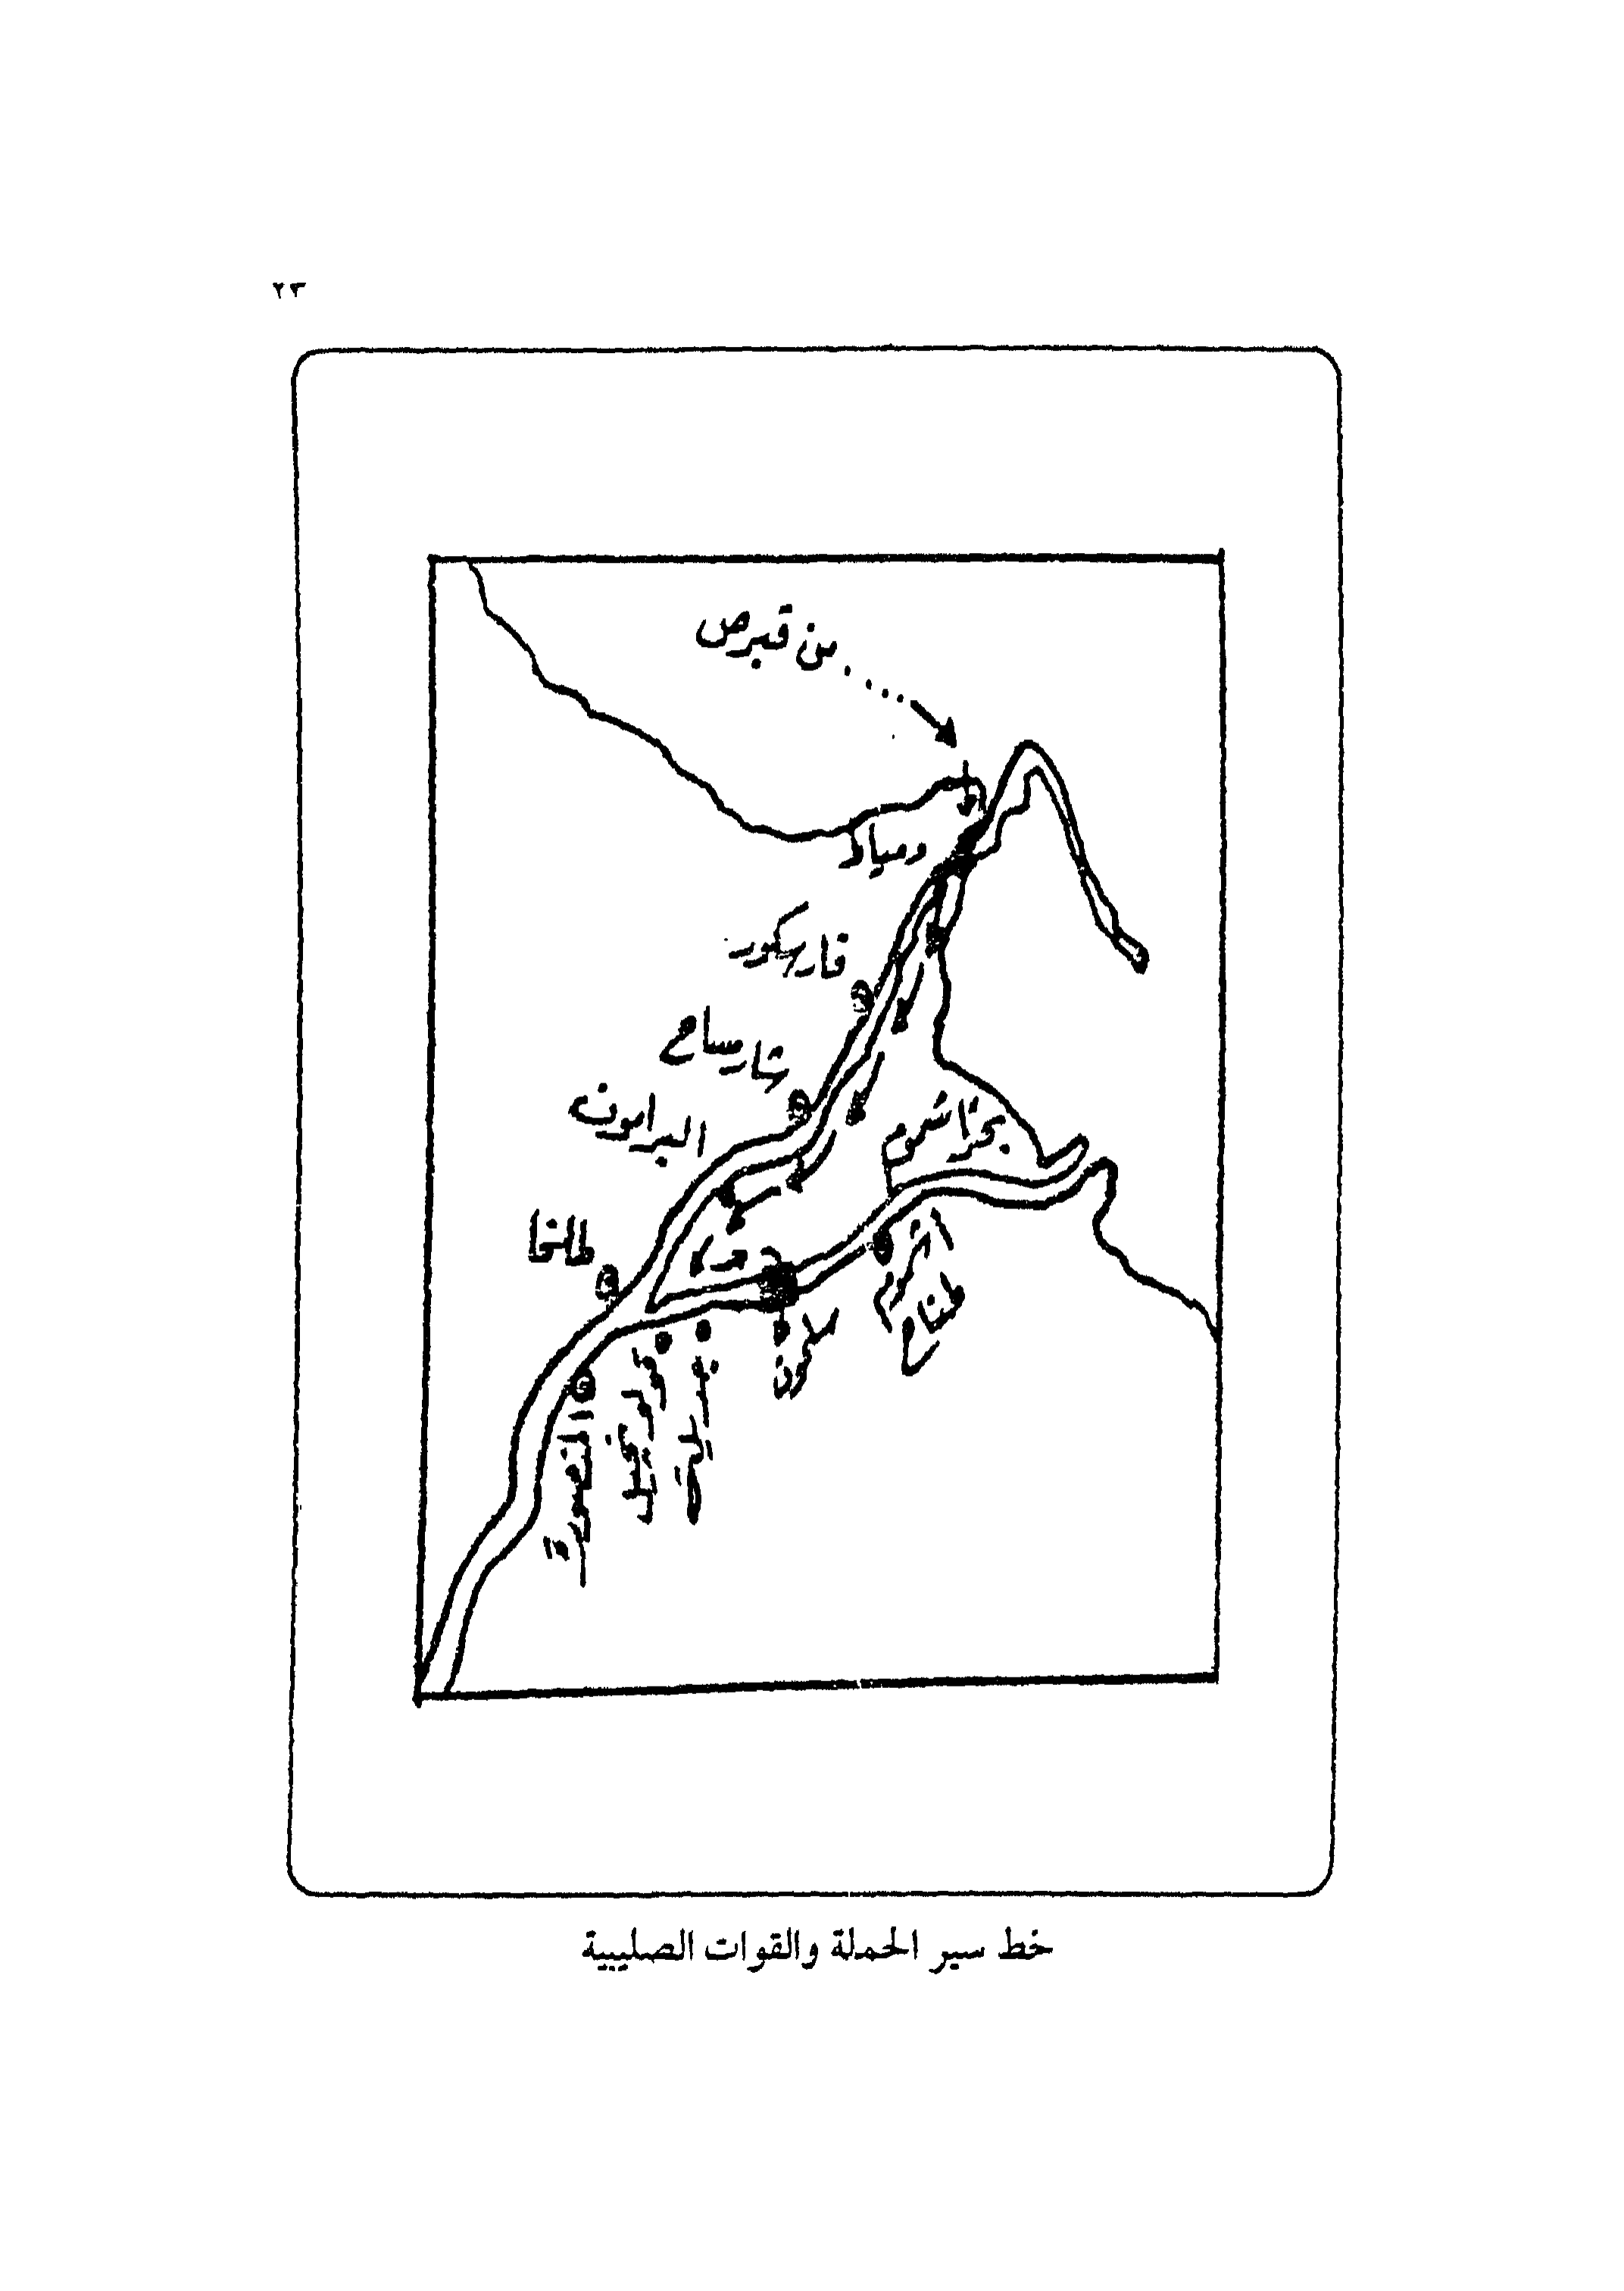 ٢٣
من قبرص
دمياط
فارسكور
شارمساح
البرامون
بحر اشموم
طلخا
اشموم طناح
سلمون
المنصورة
خط سير الحملة والقوات الصليبية